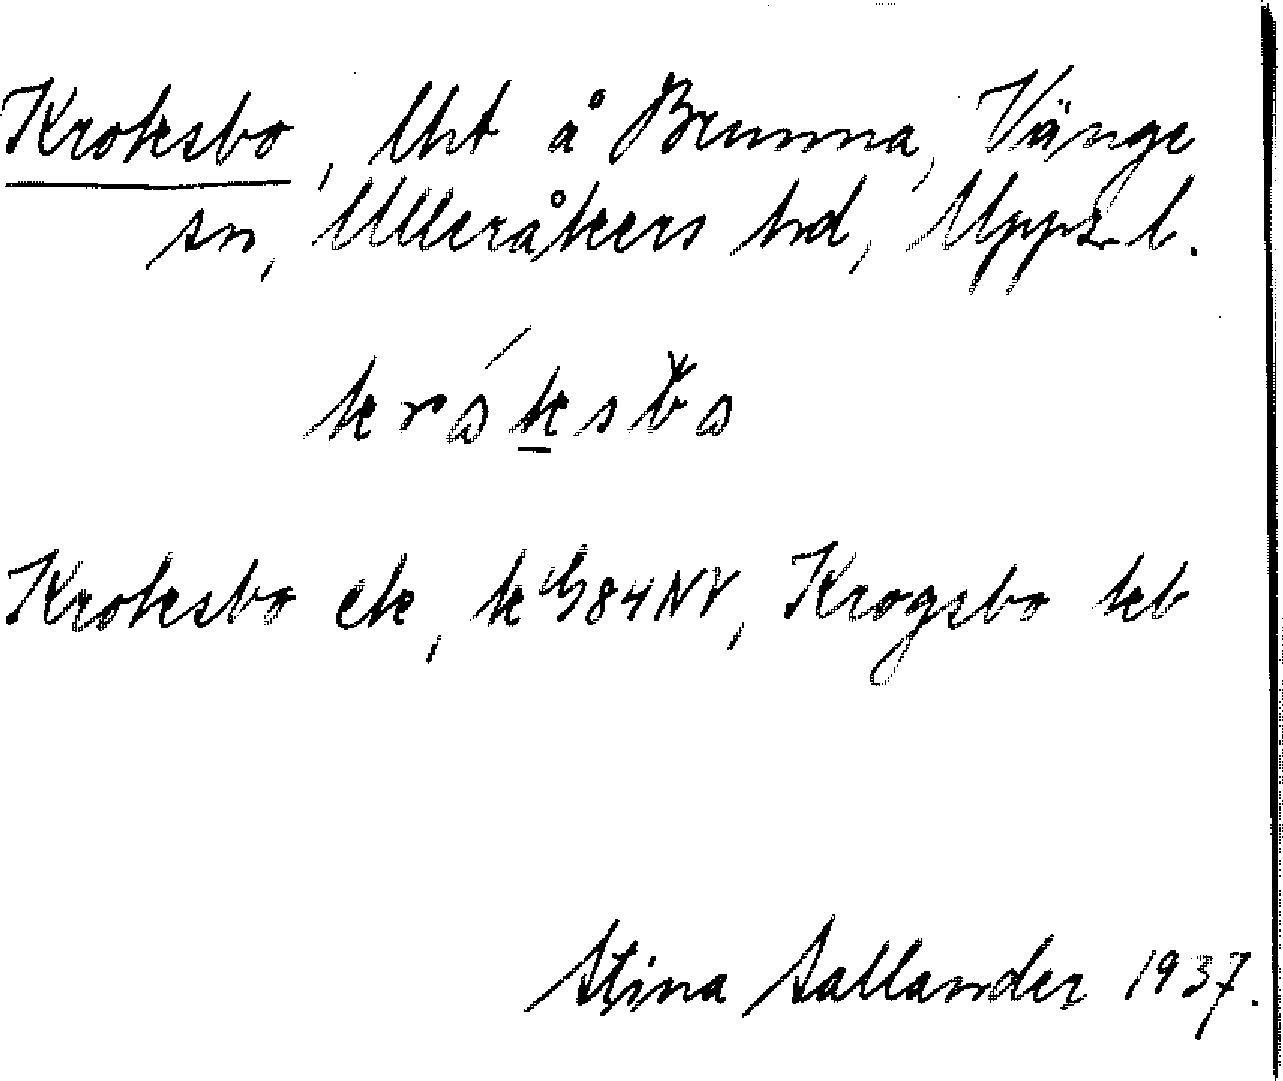 Kroksbo, lht å Brunna, Vänge
sn, Ulleråkers hd, Uppl.
kråksbo
Kroksbo ek, k 84 NV, Krogsbo kb
Stina Sallander 1937.